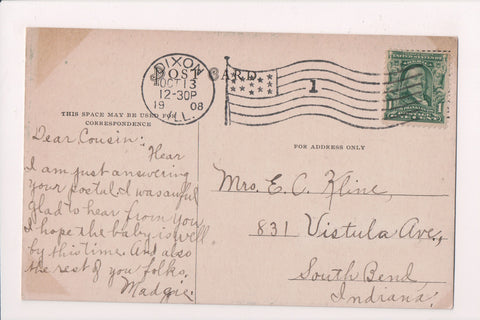 POST CARD
DIXON
OCT 13
12-30P
1908
ILL.
1
THIS SPACE MAY BE USED FOR
CORRESPONDENCE
FOR ADDRESS ONLY
Dear Cousin:
Hear
I am just answering
your postal. I was awful
glad to hear from you
I hope the baby is well
by this time. And also
the rest of you folks.
Madgie.
Mrs. E. C. Kline,
831 Vistula Ave.,
South Bend,
Indiana.